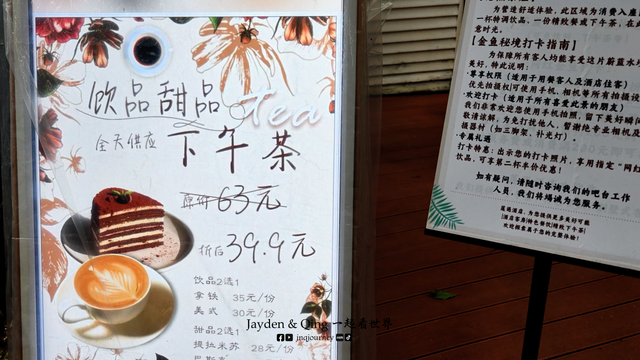 饮品甜品
Tea
全天供应
下午茶
原价63元
折后39.9元
饮品2选1
拿铁 35元/份
美式 30元/份
甜品2选1
提拉米苏 28元/份
为营造舒适体验，此区域为消费入座
一杯特调饮品、一份精致餐或下午茶，在此
意时光。
【金鱼秘境打卡指南】
为保障所有客人均能享受这片蔚蓝水
美好，特此说明：
·尊享权限（适用于用餐客人及酒店住客）
优先拍摄权|可使用手机、相机等所有拍摄设
·欢迎打卡（适用于所有喜爱此景的朋友）
我们非常欢迎您使用手机拍照，留下美好瞬间
载清凉感，为免打扰他人，谢绝专业相机及
摄器材（如三脚架、补光灯）
·专属礼遇
打卡特惠：出示您的打卡照片，享用指定“网红
饮品，可享第二杯半价优惠！
如有疑问，请随时咨询我们的吧台工作
人员，我们将竭诚为您服务。
Jayden & Qing 一起看世界
jnqjourney